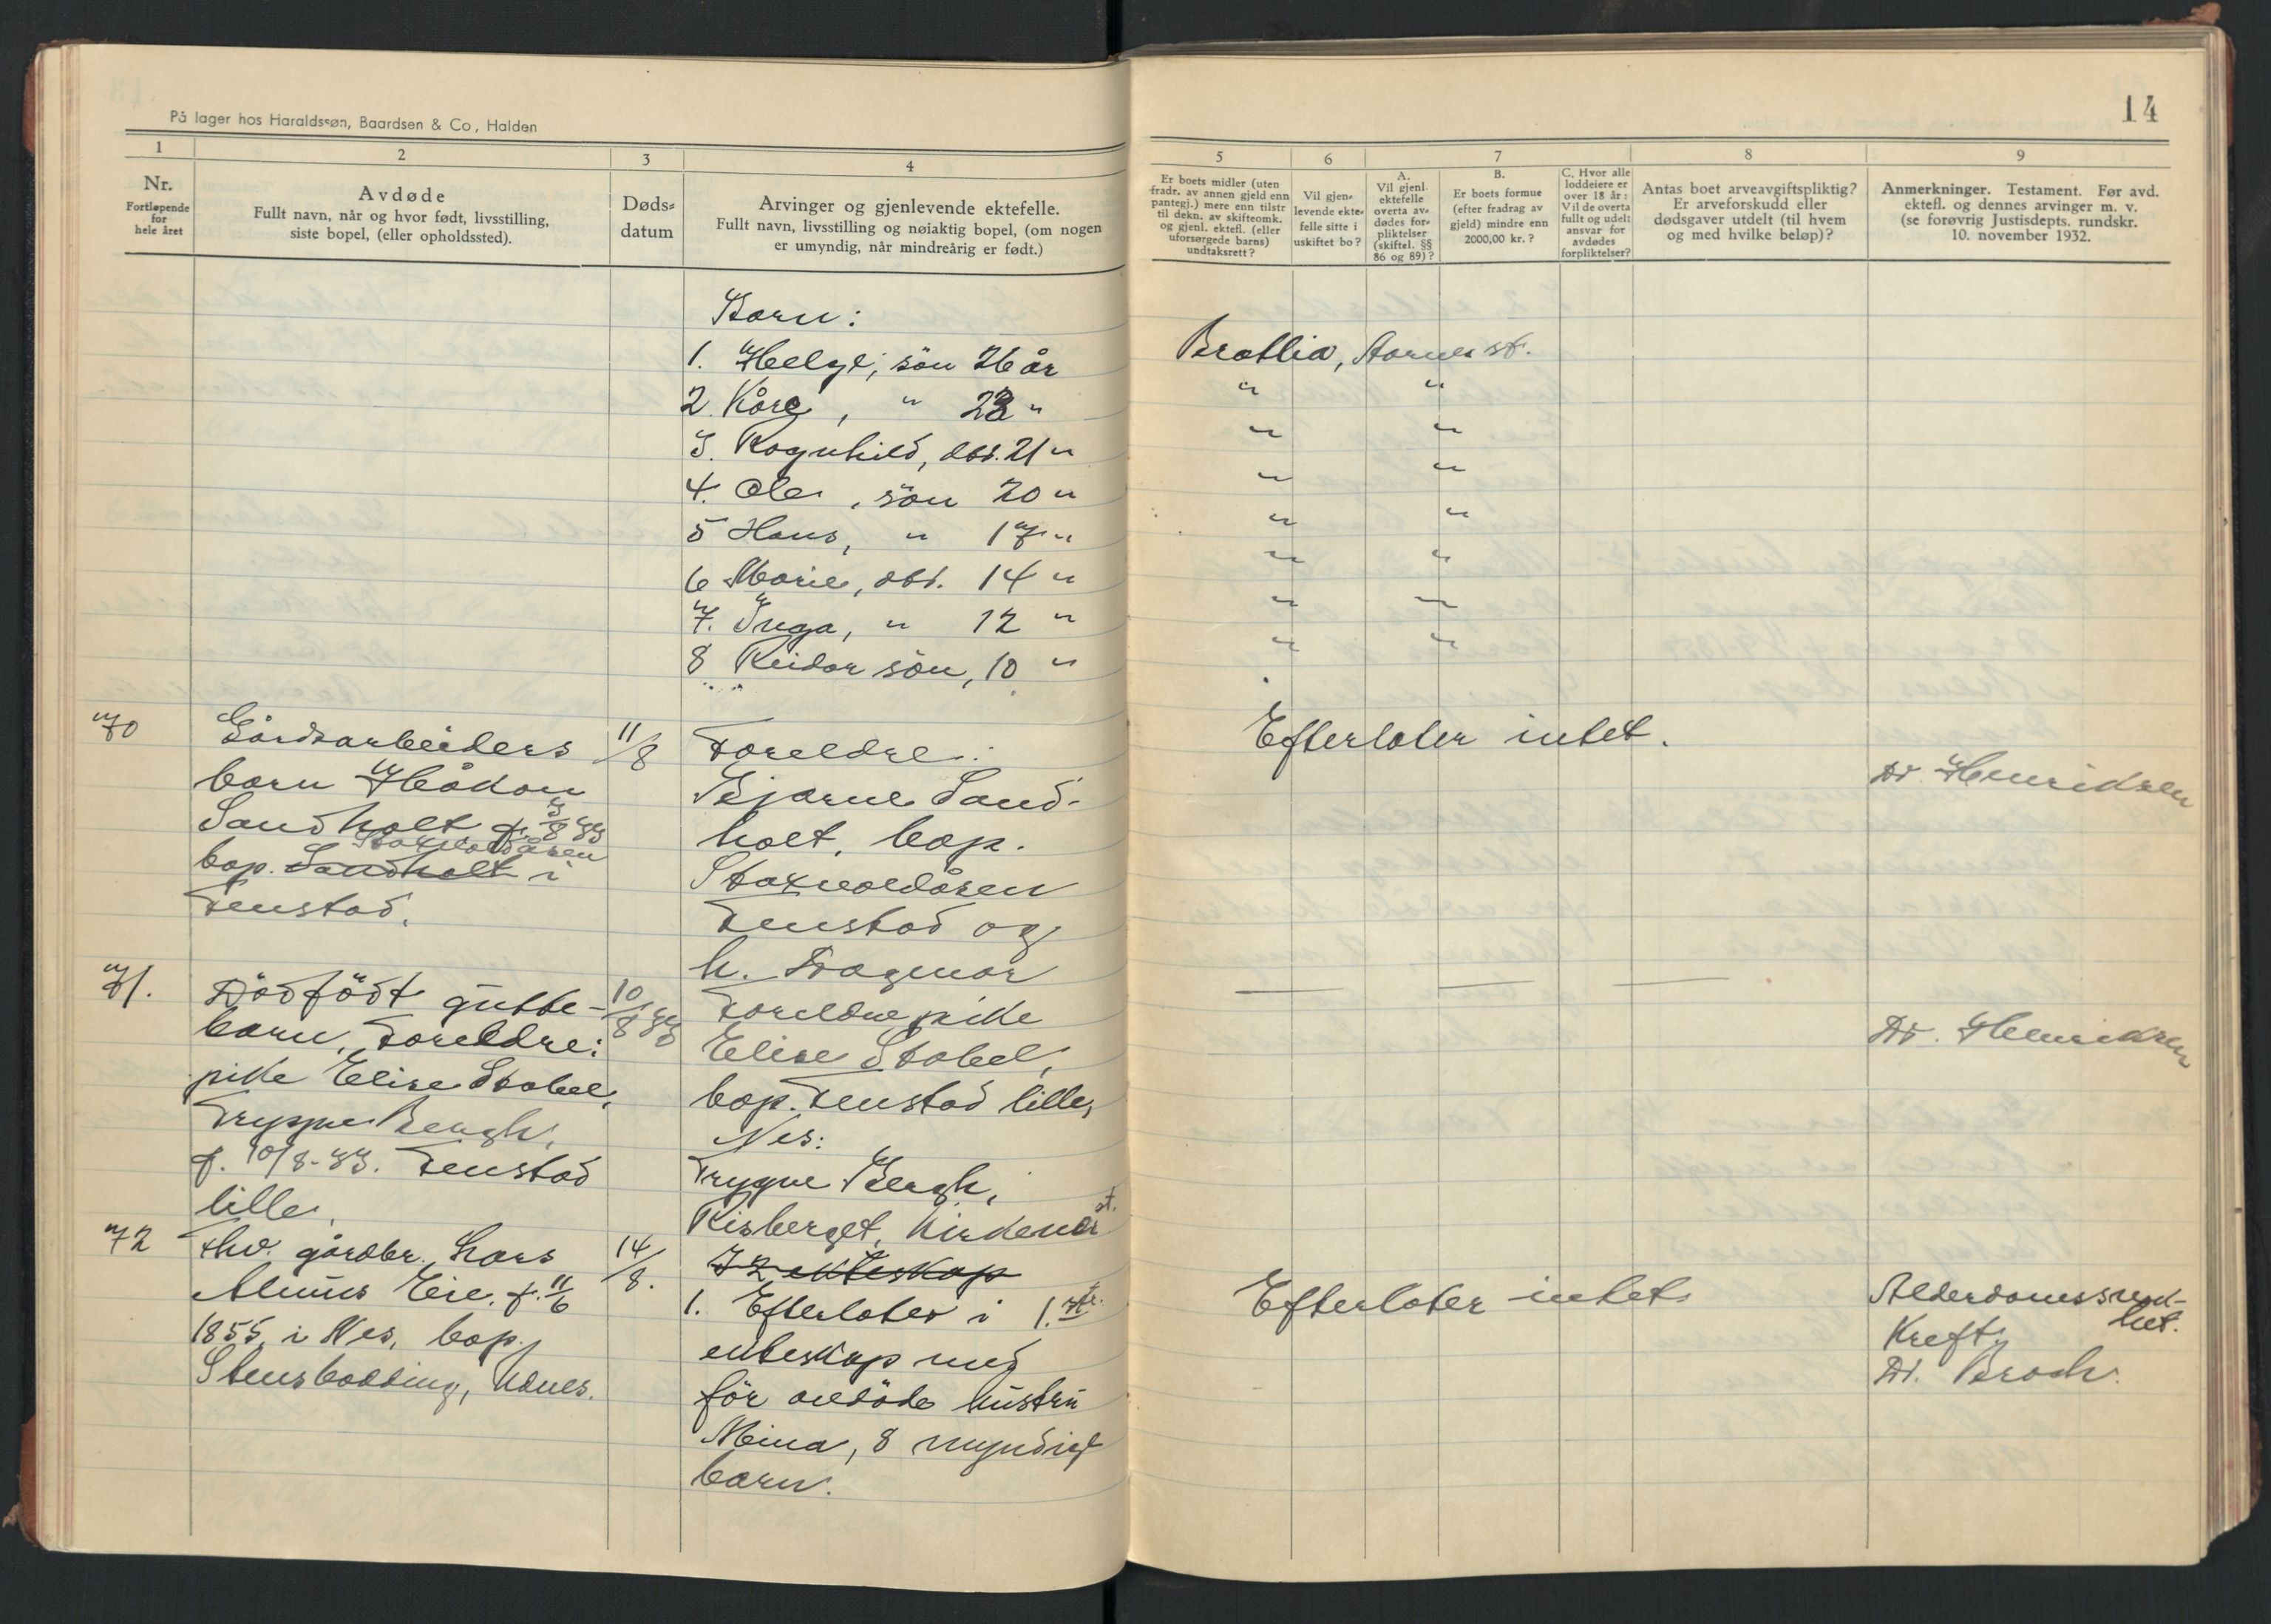 På lager hos Haraldssøn, Baardsen & Co, Halden
1
2
3
4
Nr.
Fortløpende
for
hele året
Avdøde
Fullt navn, når og hvor født, livsstilling,
siste bopel, (eller opholdssted).
Døds=
datum
Arvinger og gjenlevende ektefelle.
Fullt navn, livsstilling og nøiaktig bopel, (om nogen
er umyndig, når mindreårig er født.)
Barn:
1. Helge, sön 26 år
2. Kåre, " 23 "
3. Ragnhild, dtr. 21 "
4. Ole, sön 20 "
5 Hans, " 17 "
6 Marie, dtr. 14 "
7. Inga, " 12 "
8 Reidar sön, 10 "
70
Gårdsarbeiders
barn Håkon
Sandholt f. 3/8 33
bop. Sandholt i
Fenstad.
11/8
Foreldre:
Bjarne Sand-
holt, bop.
Fenstad og
h. Dagmar
71.
Dödfödt gutte-
barn, Foreldre:
pike Elise Stabel,
Trygve Bergh,
f. 10/8-33. Fenstad
lille.
10/8 33
Foreldre pike
Elise Stabel,
bop. Fenstad lille,
Nes:
Trygve Bergh,
Risberget, Kirkenær st.
72
Fhv. gårdbr. Lars
Eie. f. 11/6
1855 i Nes, bop.
Udnes.
14/8.
72 ekteskap
1. Efterlater i 1. ste
ekteskap med
för avdöde hustru
Mina, 8 myndige
barn.
14
5
6
7
8
9
Er boets midler (uten
fradr. av annen gjeld enn
pantegj.) mere enn tilstr
til dekn. av skifteomk.
og gjenl. ektefl. (eller
uforsørgede barns)
undtaksrett?
Vil gjen=
levende ekte=
felle sitte i
uskiftet bo?
A.
Vil gjenl.
ektefelle
overta av=
dødes for=
pliktelser
(skiftel. §§
86 og 89)?
B.
Er boets formue
(efter fradrag av
gjeld) mindre enn
2000,00 kr.?
C. Hvor alle
loddeiere er
over 18 år:
Vil de overta
fullt og udelt
ansvar for
avdødes
forpliktelser?
Antas boet arveavgiftspliktig?
Er arveforskudd eller
dødsgaver utdelt (til hvem
og med hvilke beløp)?
Anmerkninger. Testament. Før avd.
ektefl. og dennes arvinger m. v.
(se forøvrig Justisdepts. rundskr.
10. november 1932.
Brattlia, Aarnes st.
" "
" "
" "
" "
" "
" "
" "
Efterlater intet.
Dr. Henriksen
Dr. Henriksen
Efterlater intet.
Alderdomssvak-
het.
Kreft,
Dr. Broch.